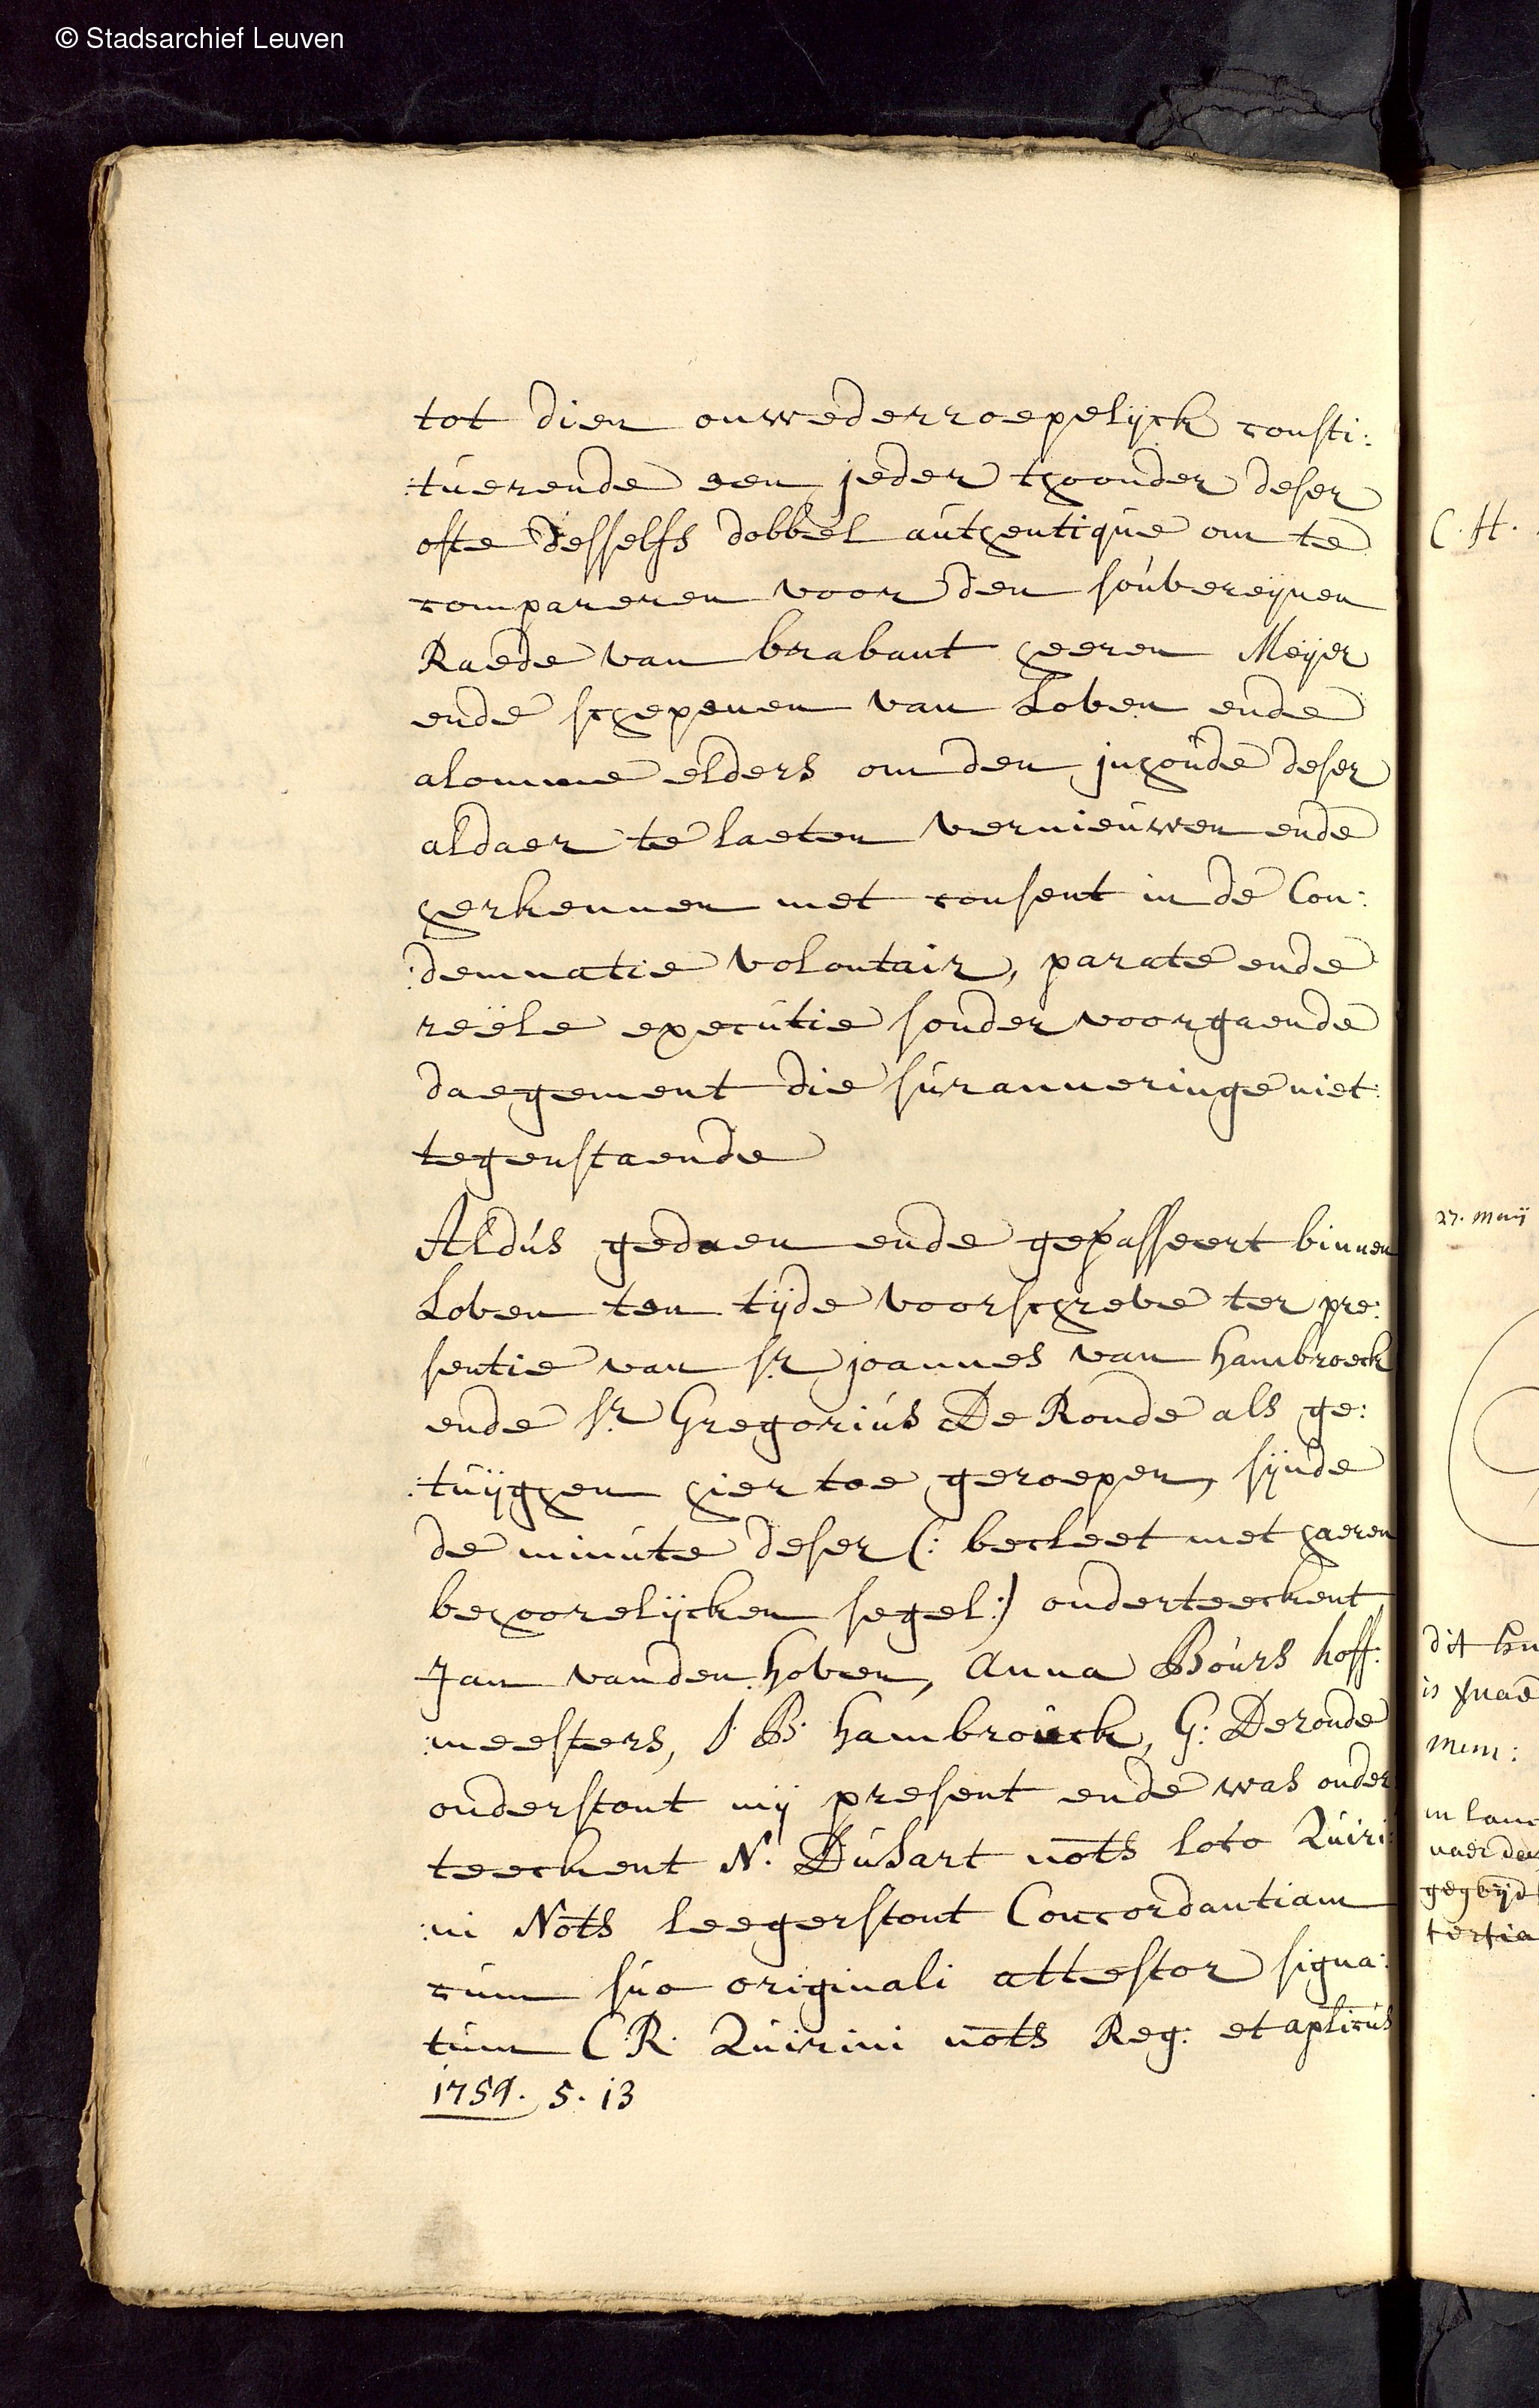 © Stadsarchief Leuven
tot dien onwederroepelijck consti:
:tuerende een jeder thoonder deser
ofte desselfs dobbel authentique om te
compareren voor den souvereijnen
Raede van brabant heeren Meijer
ende schepenen van Loven ende
alomme elders om den inhoude deser
aldaer te laeten vernieuwen ende
herkennen met consent in de Con:
:demnatie volontair, parate ende
reële executie sonder voorgaende
daegement die suranneringe niet:
tegenstaende
Aldus gedaen ende gepasseert binnen
Loven ten tijde voorschreve ter pre:
sentie van sr. joannes van hambroeck
ende sr. Gregorius De Ronde als ge:
:tuijghen hier toe geroepen, sijnde
de minute deser (: becleet met haeren
behoorelijcken segel:) onderteeckent
Jan vanden hoven, Anna Bours hoff:
:meesters, J. B. hambrouck, G: Deronde
onderstont mij present ende was onder
teeckent N. Dusart nots loco Quiri:
:ni Nots leegerstont Concordantiam
cum suo originali attestor signa:
tum C: R: Quirini nots Reg: et aplicus
1759. 5. 13
C. H.
27. meij
dit
is
mem:
in
tertia